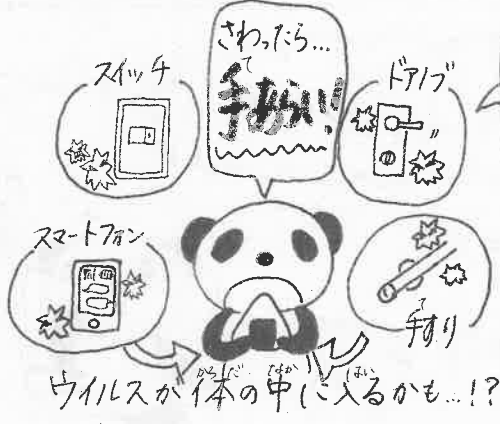 さわったら…
手あらい!
て
スイッチ
ドアノブ
スマートフォン
手すり
て
ウイルスが体の中に入るかも…!?
からだ なか はい